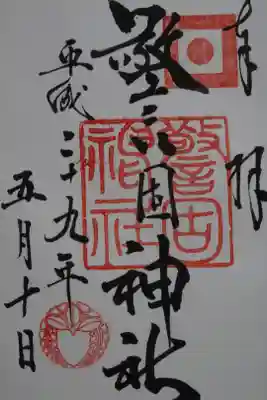 奉拝
警固神社
警固
神社
平成二十九年
五月十日